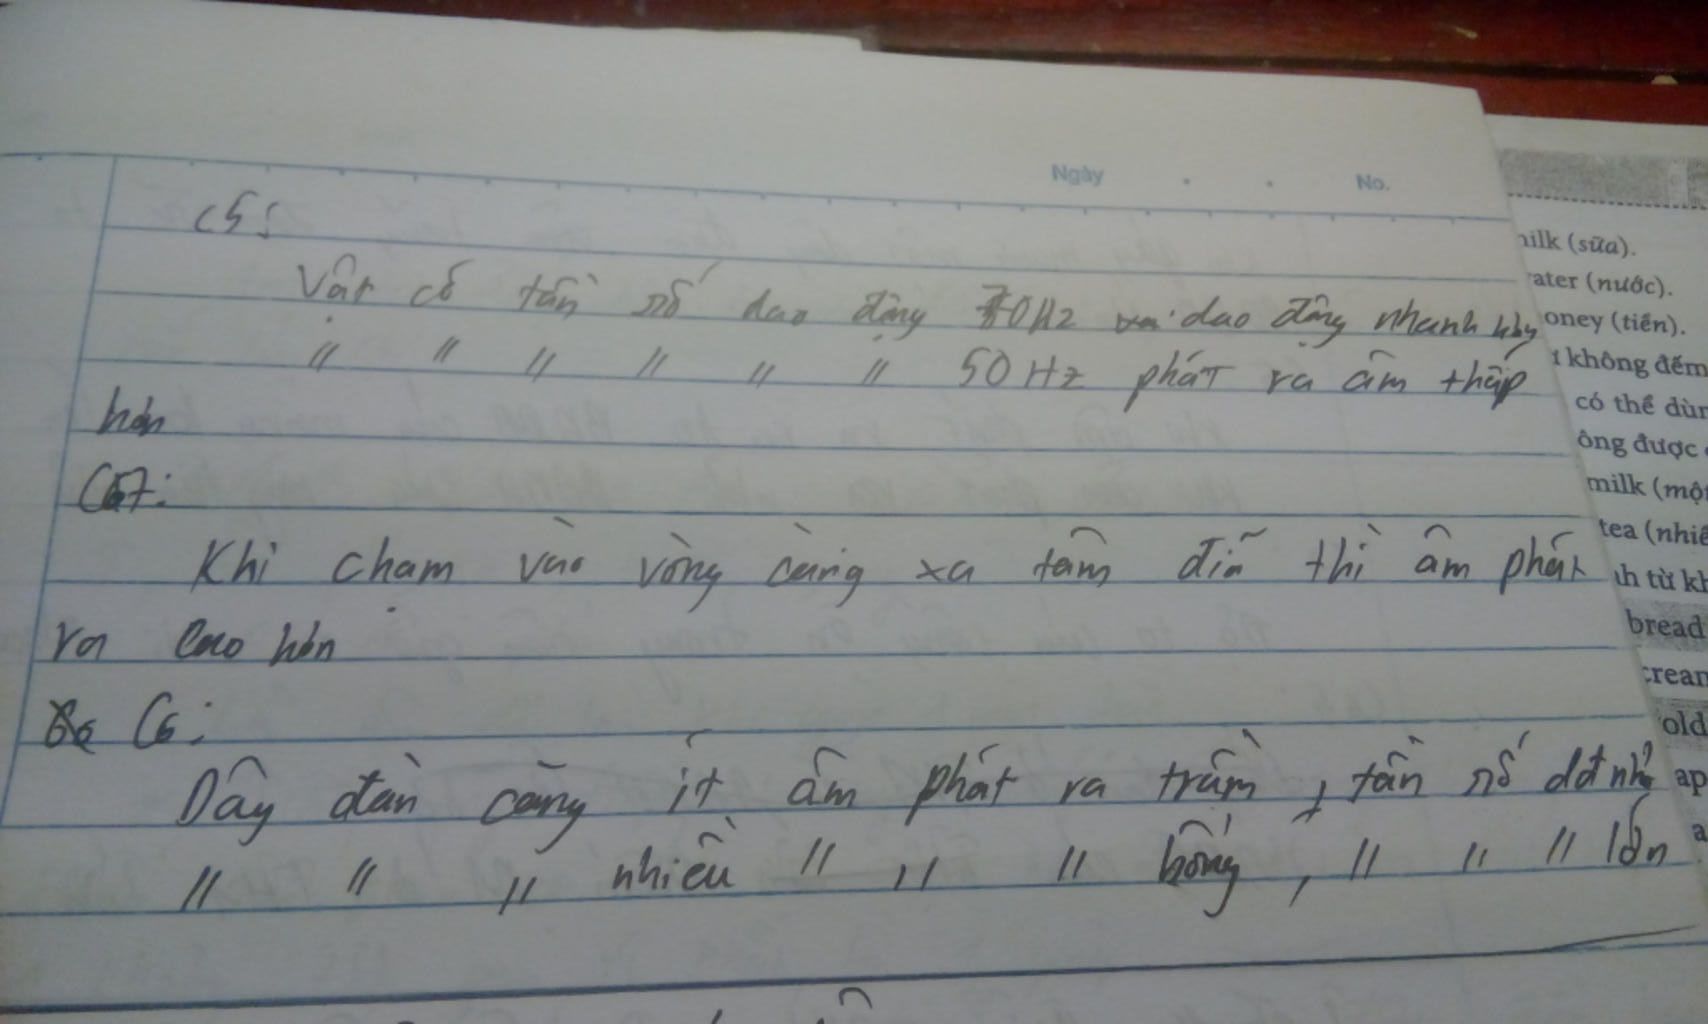 Ngày . . No.
C5:
Vật có tần số dao động 70Hz dao động nhanh hơn
" " " " " " 50Hz phát ra âm thấp
hơn
C7:
Khi chạm vào vòng càng xa tâm đĩa thì âm phát
ra cao hơn
C6:
Dây đàn căng ít âm phát ra trầm, tần số dđ nhỏ
" " " nhiều " " " bổng, " " " lớn
milk (sữa).
water (nước).
oney (tiền).
không đếm
có thể dùn
ông được
milk (một
tea (nhiề
nh từ kh
bread
crean
old
ap
a